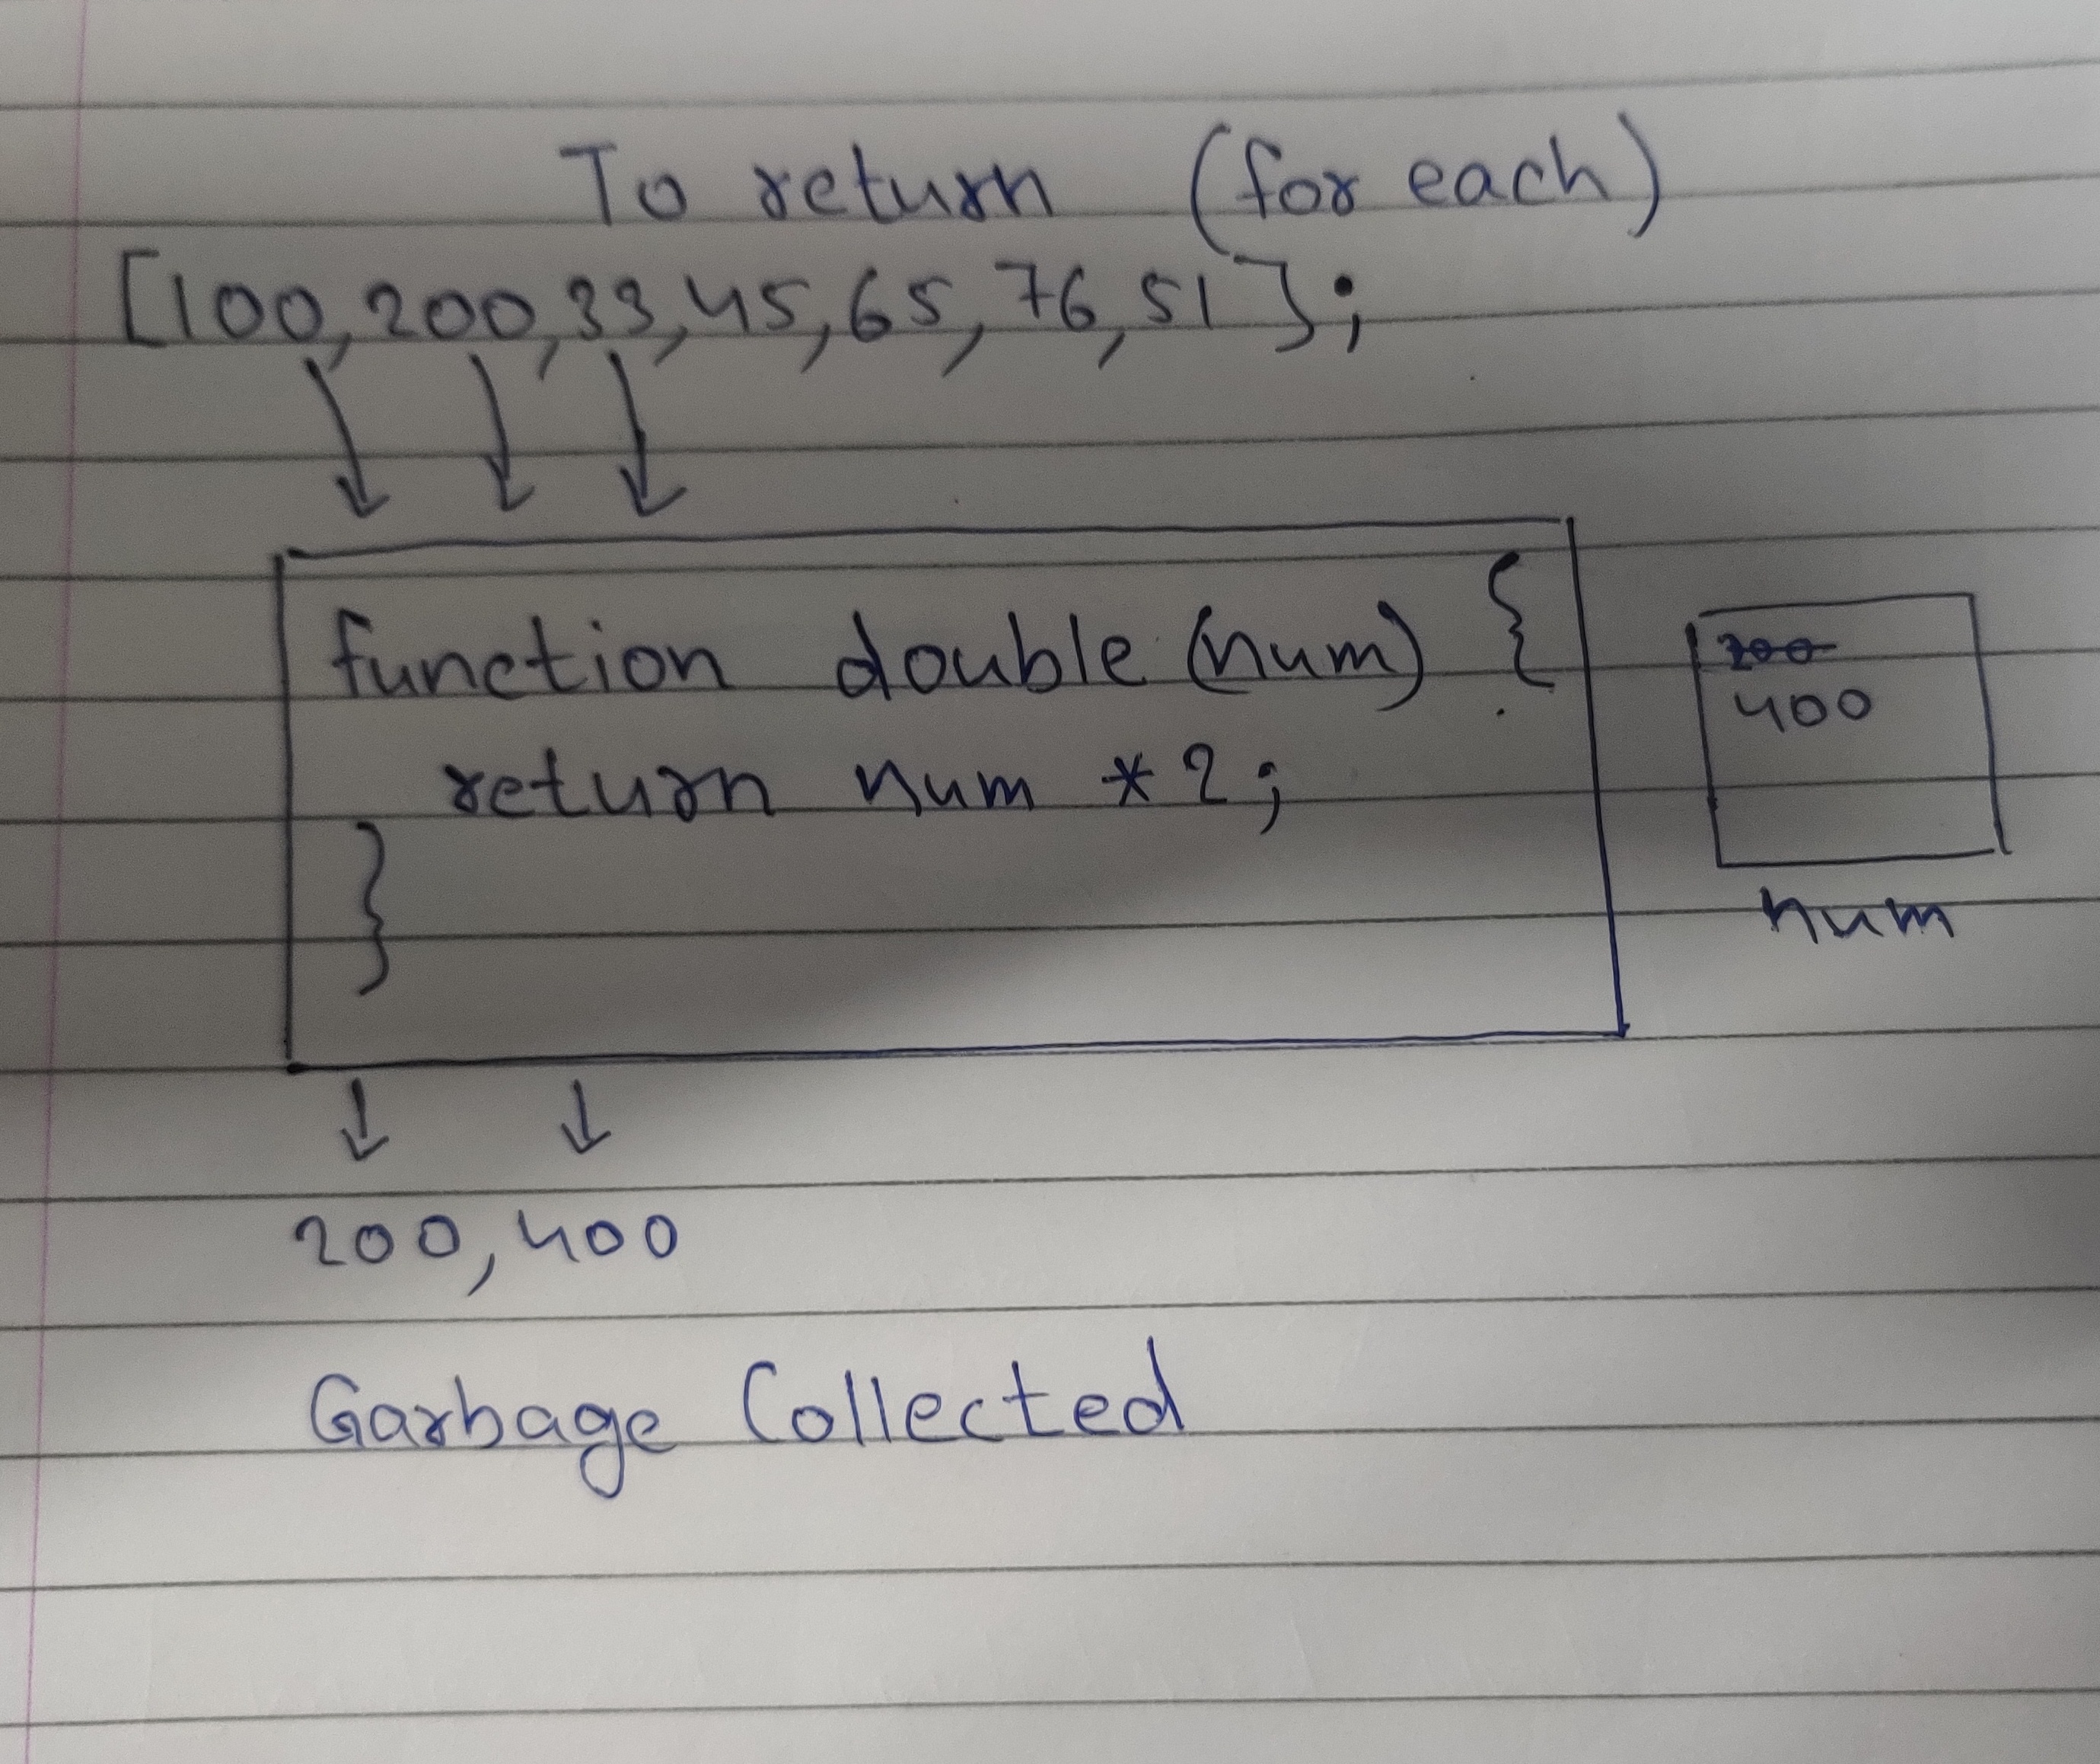 To return (for each)
[100,200,33,45,65,76,51];
function double (num) {
return num * 2;
}
200
400
num
200, 400
Garbage Collected